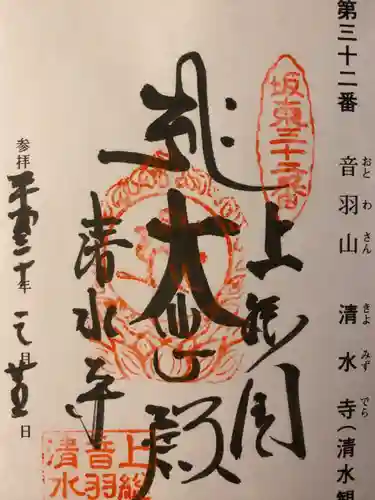 第三十二番 音羽山 清水寺(清水観
おとわさん きよみずでら
坂東三十二番
上総国
大悲殿
清水寺
参拝 平成三十年 二月 廿五日
上総
音羽
清水